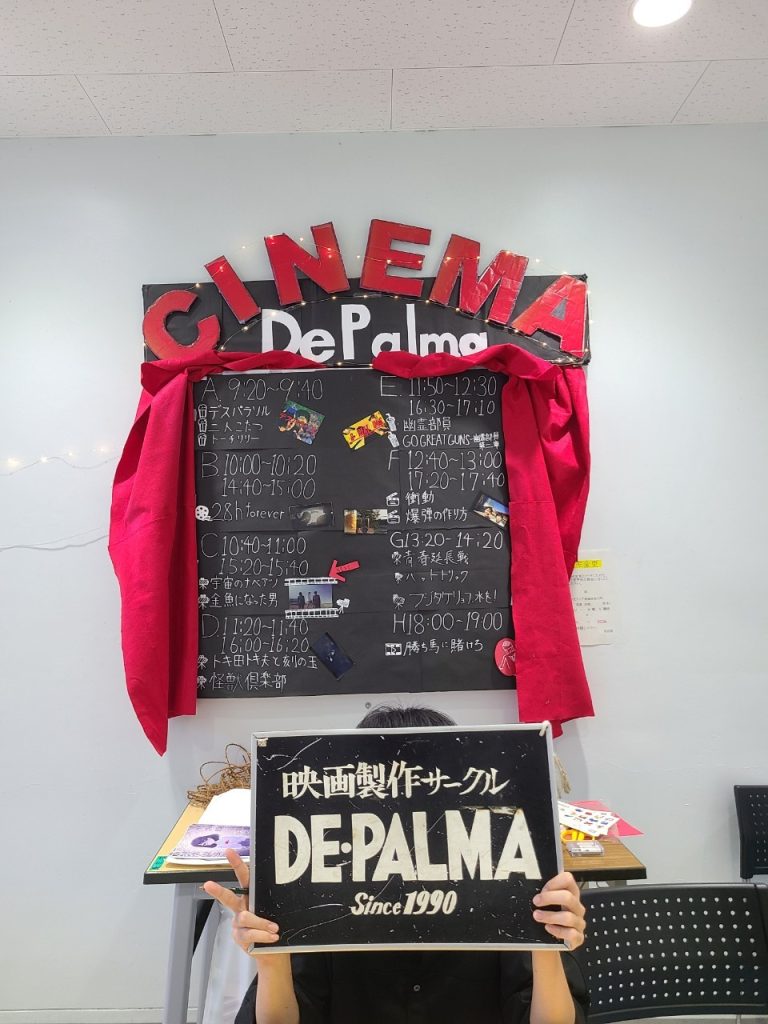 CINEMA
De Palma
A. 9:20~9:40
デスパラソル
二人こたつ
トーチリリー
B 10:00~10:20
14:40~15:00
28h forever
C. 10:40~11:00
15:20~15:40
宇宙のオベアジ
金魚になった男
D. 11:20~11:40
16:00~16:20
トキ田トキ夫と刻の玉
怪獣倶楽部
E. 11:50~12:30
16:30~17:10
幽霊部員
GO GREAT GUNS
F 12:40~13:00
17:20~17:40
衝動
爆弾の作り方
G 13:20~14:20
青春延長戦
ハットトリック
フジタゲリュフ水も!
H 18:00~19:00
勝ち馬に賭けろ
映画製作サークル
DE・PALMA
Since 1990